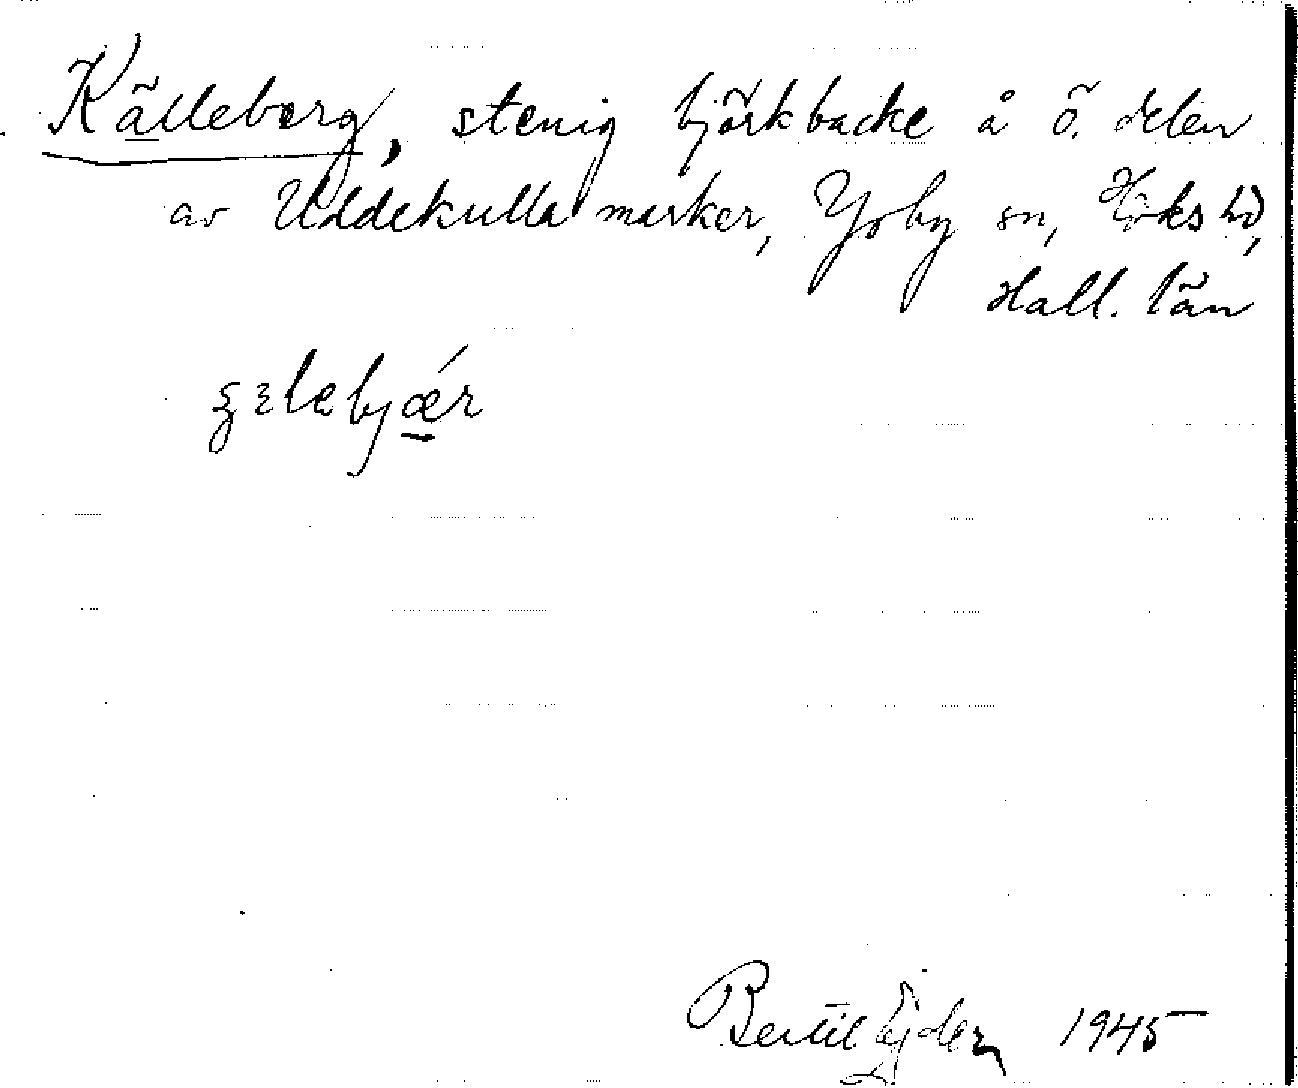 Källeberg, stenig björkbacke å ö. delen
av Uddekulla marker, Ysby sn, Höks hd,
Hall. län
Bertil Ejder 1945